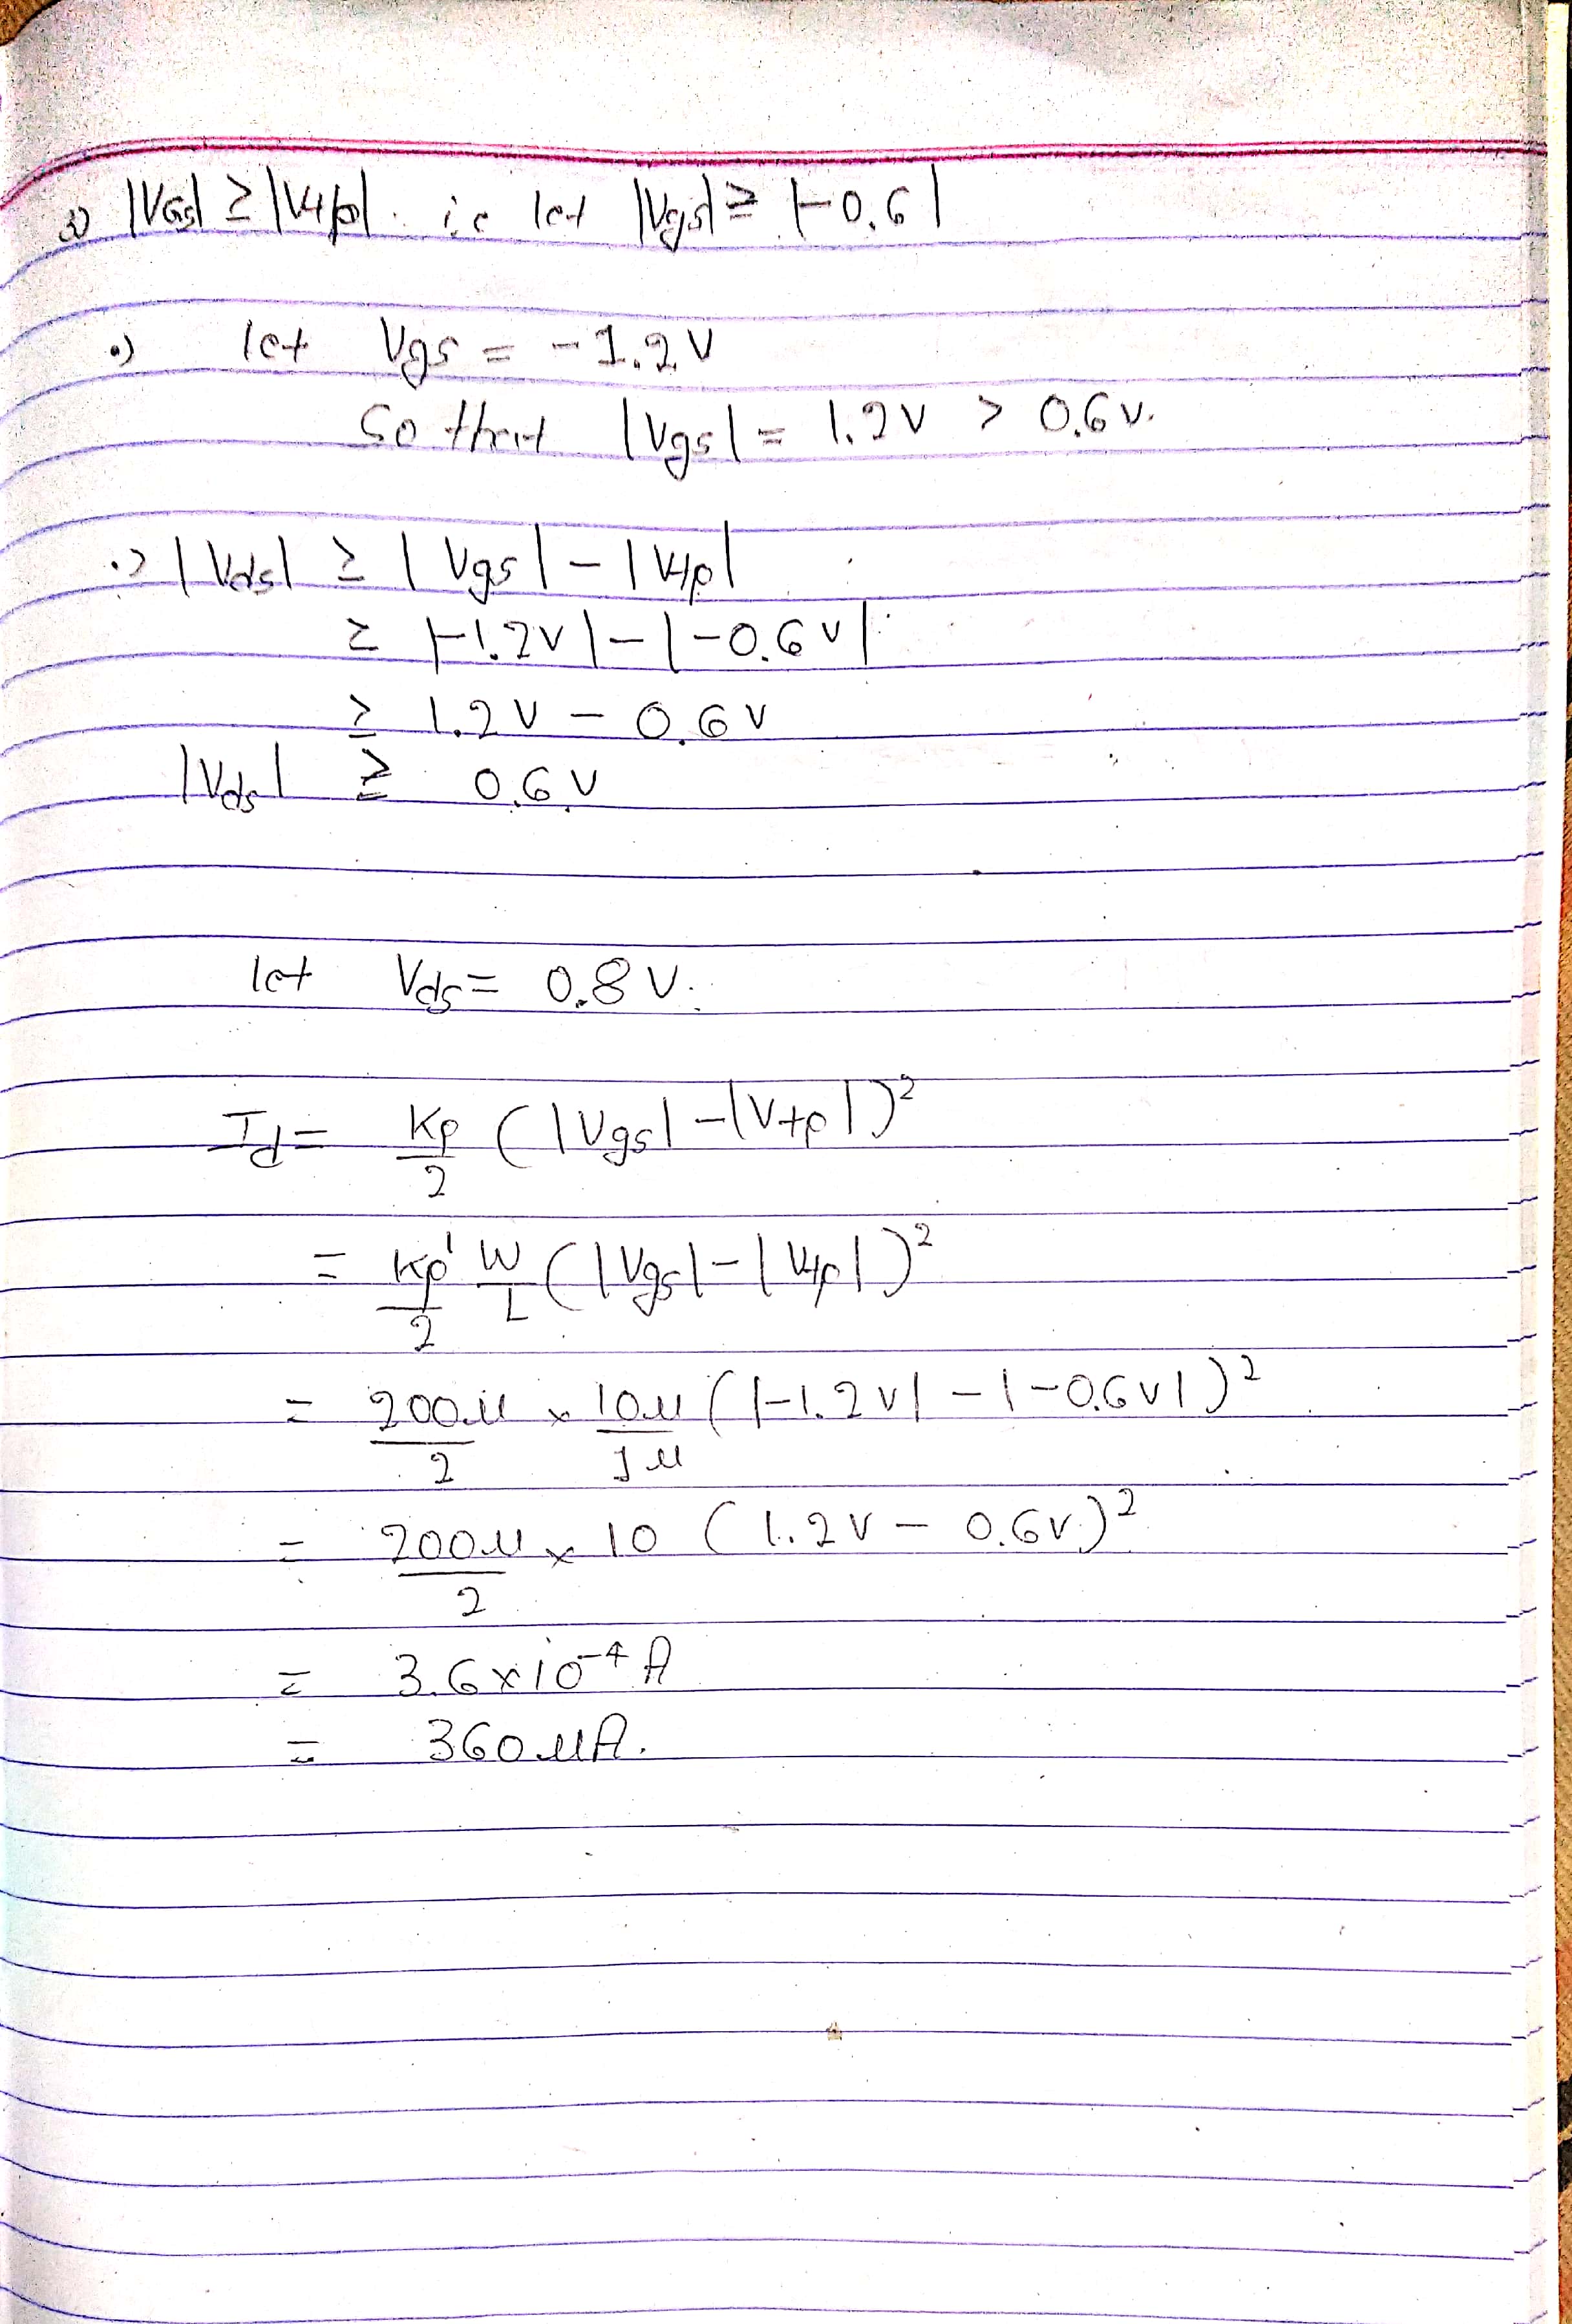 3) |VGS| ≥ |Vtp| . i.e let |Vgs| ≥ |-0.6|
•) let Vgs = -1.2 V
So that |Vgs| = 1.2V > 0.6V.
•) |Vds| ≥ |Vgs| - |Vtp|
≥ |-1.2V| - |-0.6V|
≥ 1.2V - 0.6V
|Vds| ≥ 0.6V
let Vds = 0.8V.
Id = Kp/2 (|Vgs| - |Vtp|)²
= Kp'/2 W/L (|Vgs| - |Vtp|)²
= 200µ/2 × 10µ/1µ (|-1.2V| - |-0.6V|)²
= 200µ/2 × 10 (1.2V - 0.6V)²
= 3.6×10⁻⁴ A
= 360µA.